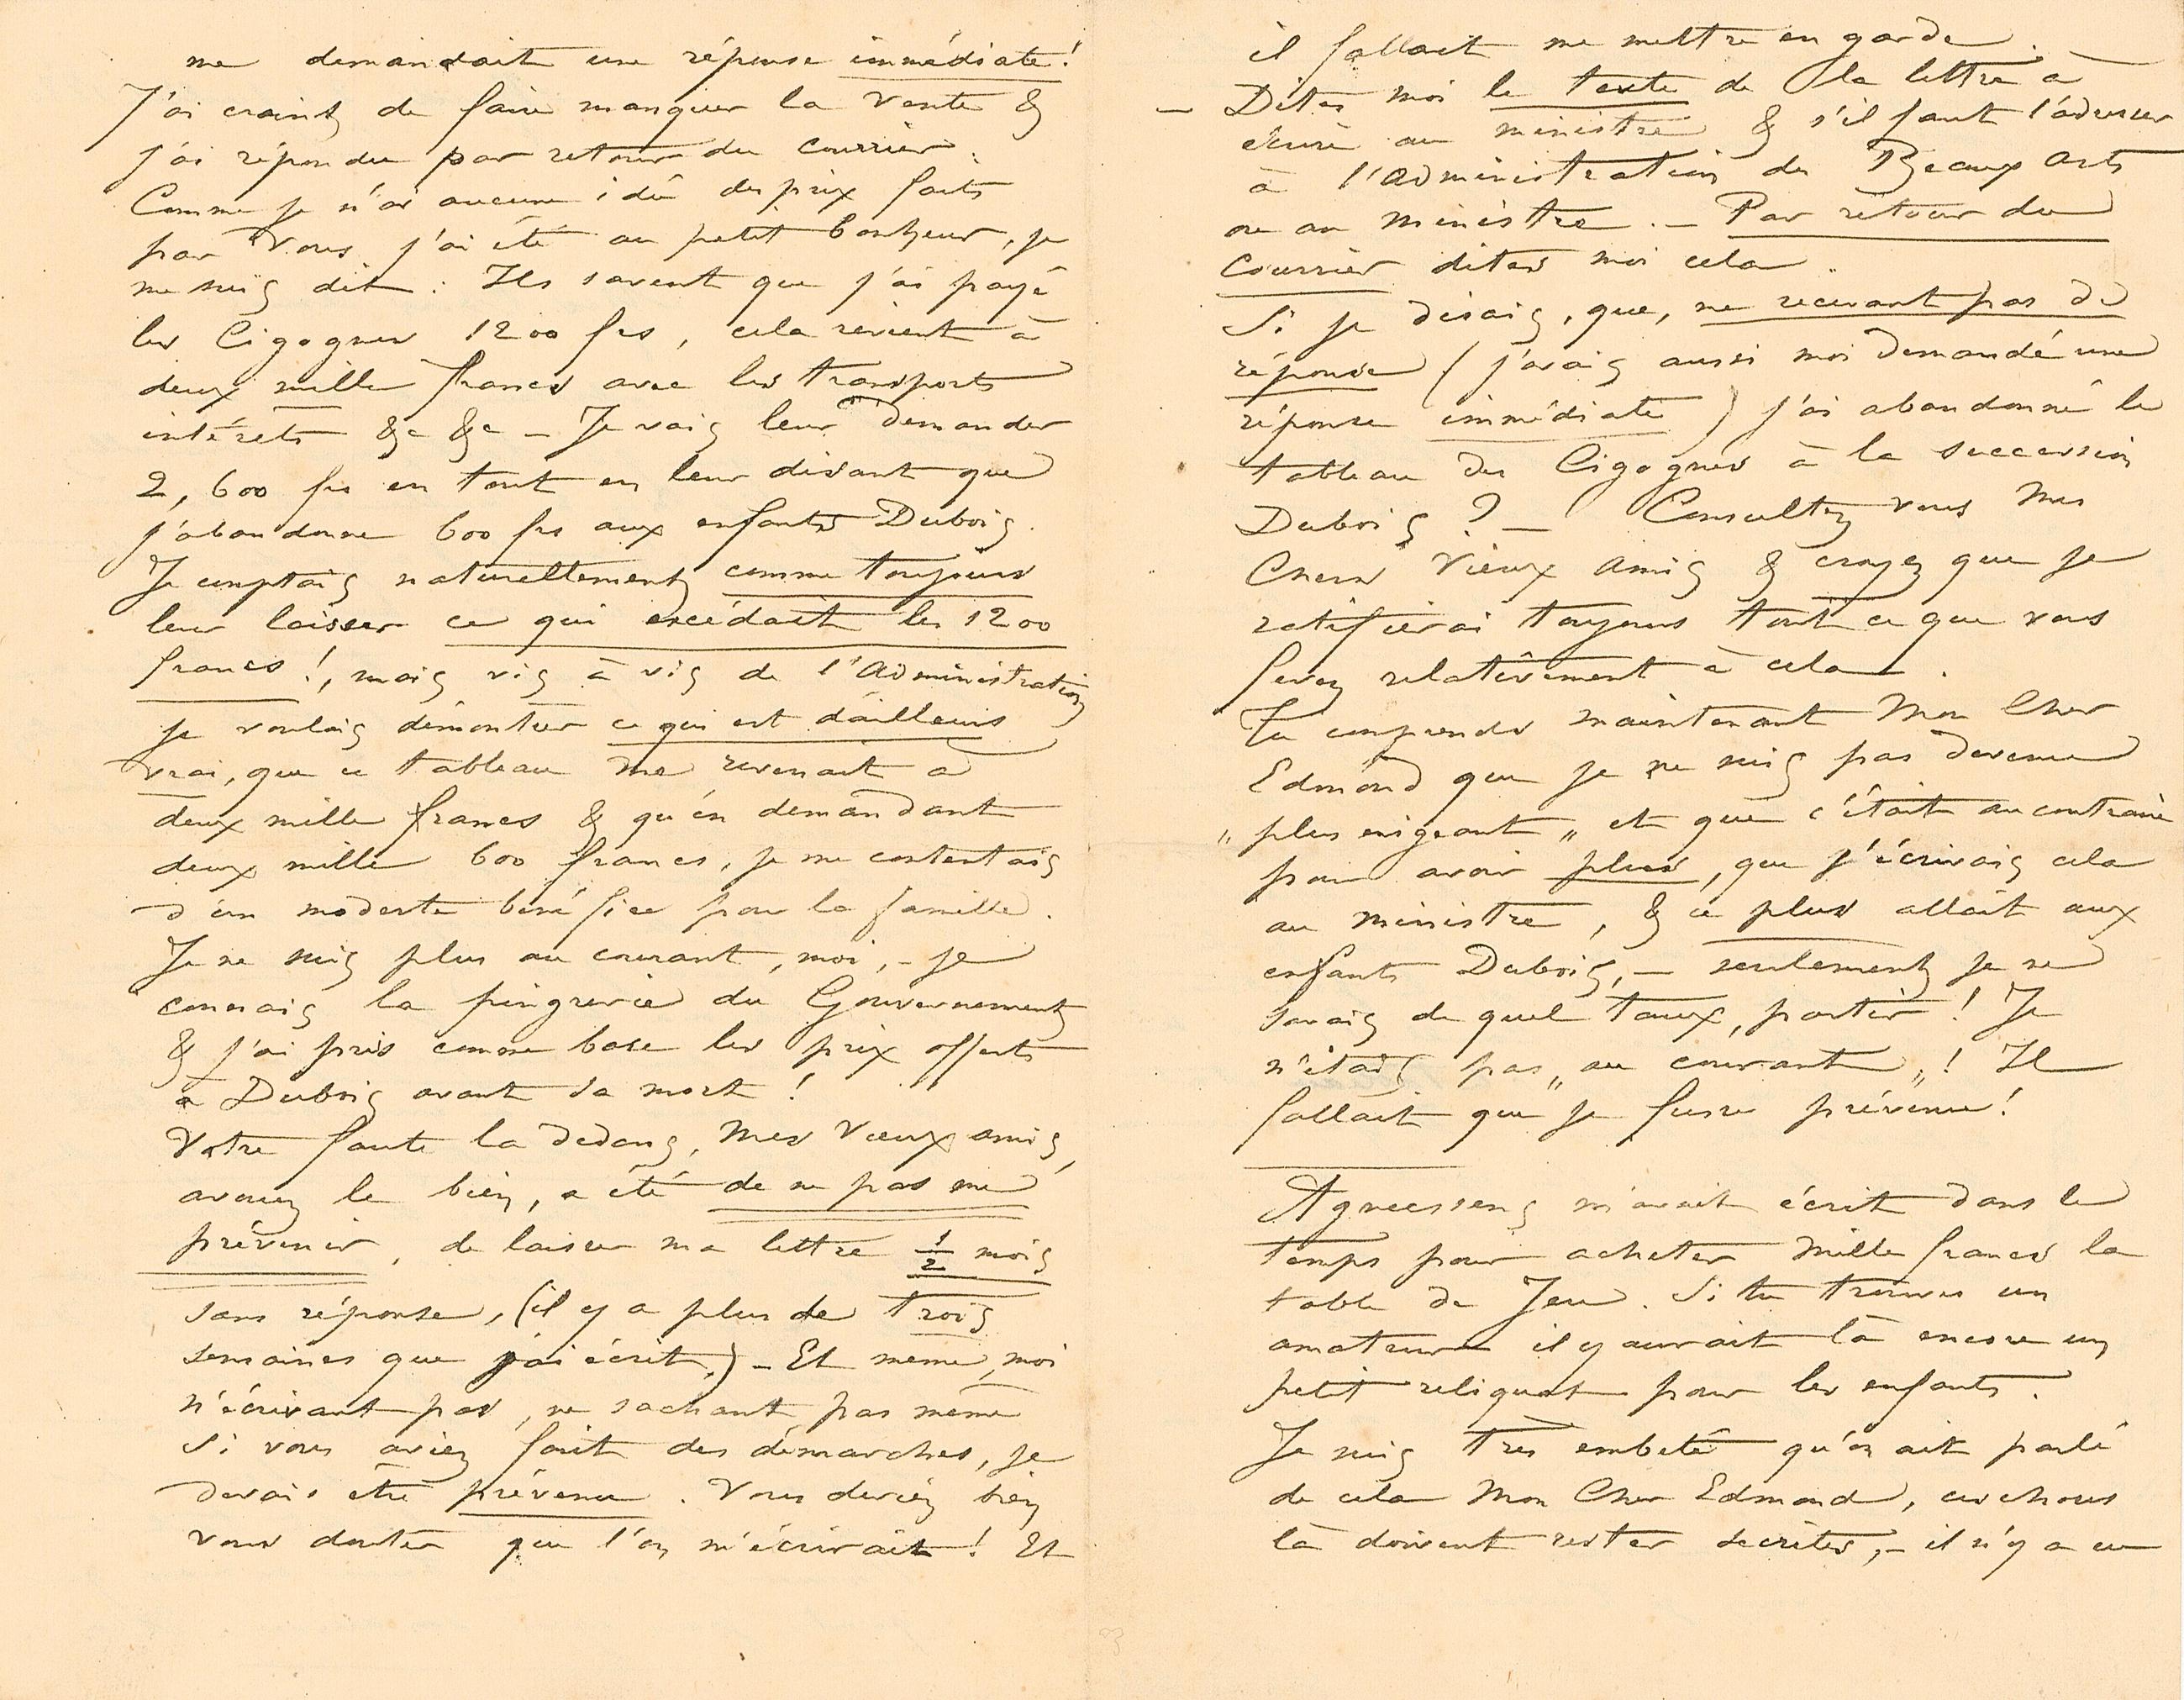 me demandait une réponse immédiate!
J'ai craint de faire manquer la vente &
j'ai répondu par retour du courrier.
Comme je n'ai aucune idée des prix faits
par vous j'ai été au petit bonheur, je
me suis dit : Ils savent que j'ai payé
les Cigognes 1200 frs, cela revient à
deux mille francs avec les transports
intérêts &c &c – Je vais leur demander
2,600 frs en tout en leur disant que
j'abandonne 600 frs aux enfants Dubois.
Je comptais naturellement comme toujours
leur laisser ce qui excédait les 1200
francs!, mais vis à vis de l'Administration
je voulais démontrer ce qui est d'ailleurs
vrai, que ce tableau me revenait à
deux mille francs & qu'en demandant
deux mille 600 francs, je me contentais
d'un modeste bénéfice pour la famille.
Je ne suis plus au courant, moi, – je
connais la pingrerie du Gouvernement
& j'ai pris comme base les prix offerts
à Dubois avant sa mort!
Votre faute la dedans, mes vieux amis,
avouez le bien, a été de ne pas me
prévenir, de laisser ma lettre 1/2 mois
sans réponse, (il y a plus de trois
semaines que j'ai écrit.) – Et meme, moi
n'écrivant pas, ne sachant pas même
si vous aviez fait des démarches, je
devais être prévenu. Vous deviez bien
vous douter que l'on m'écrirait! Et
il fallait me mettre en garde. –
– Dites moi le texte de la lettre à
écrire au ministre & s'il faut l'adresser
à l'Administration des Beaux Arts
ou au Ministre. – Par retour du
courrier dites moi cela.
Si je disais, que, ne recevant pas de
réponse (j'avais aussi moi demandé une
réponse immédiate) j'ai abandonné le
tableau des Cigognes à la succession
Dubois? – Consultez vous mes
Chers Vieux Amis & croyez que je
ratifierai toujours tout ce que vous
ferez relativement à cela.
Tu comprends maintenant Mon Cher
Edmond que je ne suis pas devenu
„ plus exigeant „ et que c'était au contraire
pour avoir plus, que j'écrivais cela
au ministre, & ce plus allait aux
enfants Dubois, – seulement je ne
savais de quel taux, partir! Je
n'étais pas „ au courant „! Il
fallait que je fusse prévenu!
Agneessens m'avait écrit dans le
temps pour acheter mille francs la
table de Jeu. Si tu trouves un
amateur il y aurait là encore un
petit reliquat pour les enfants.
Je suis très embêté qu'on ait parlé
de cela Mon Cher Edmond, ces choses
là doivent rester secrètes, – il n'y a eu